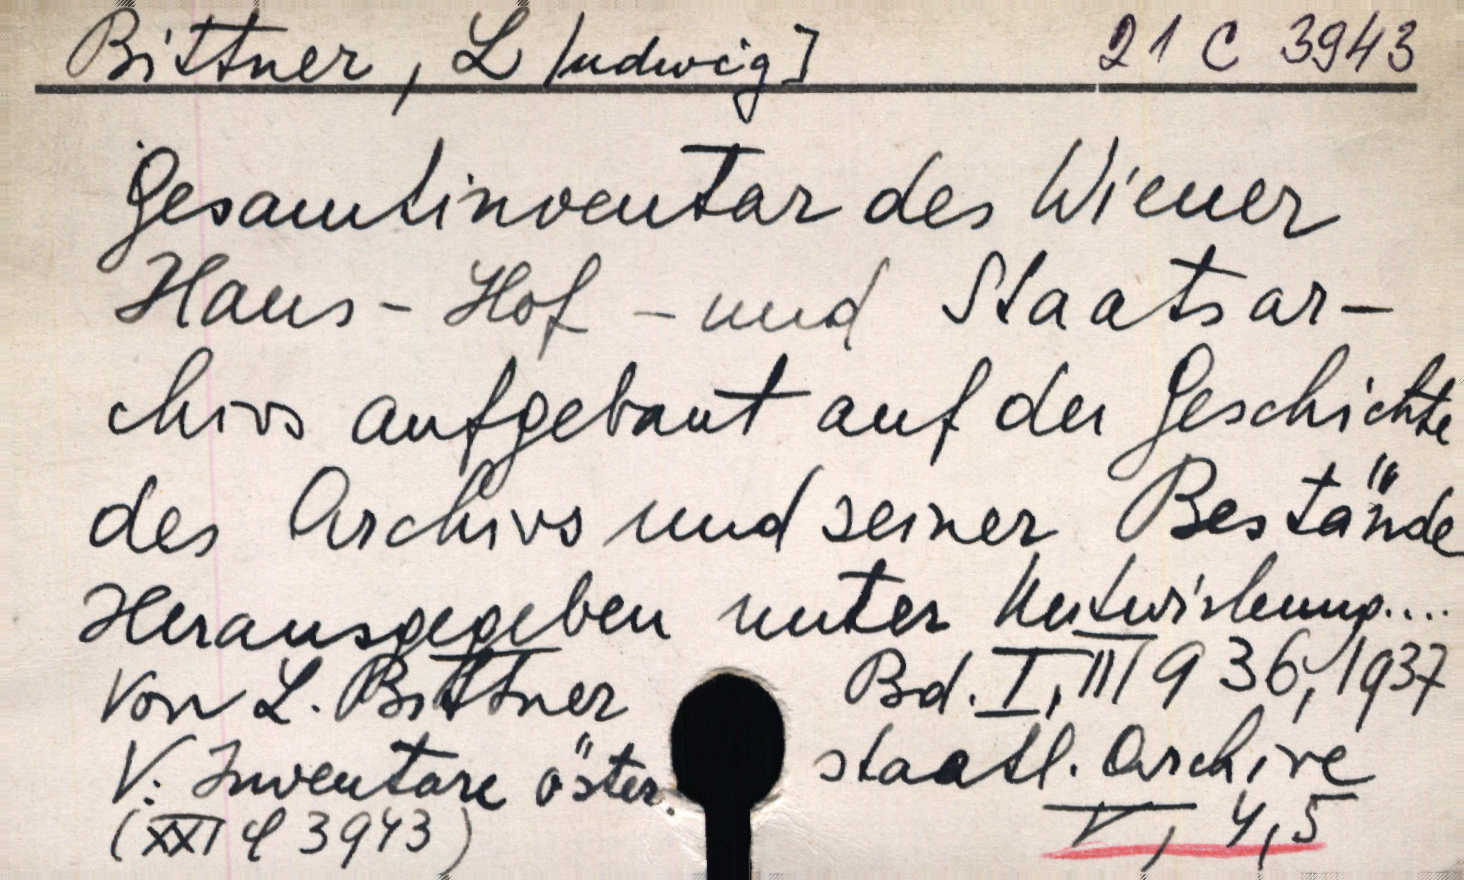 Bittner, L[udwig] 21 C 3943
Gesamtinventar des Wiener
Haus- Hof - und Staatsar-
chivs aufgebaut auf der Geschichte
des Archivs und seiner Bestände
Herausgegeben unter
von L. Bittner Bd. I, III 1936, 1937
V. Inventare öster. staatl. Archive
(XXI C 3943) V, 4, 5